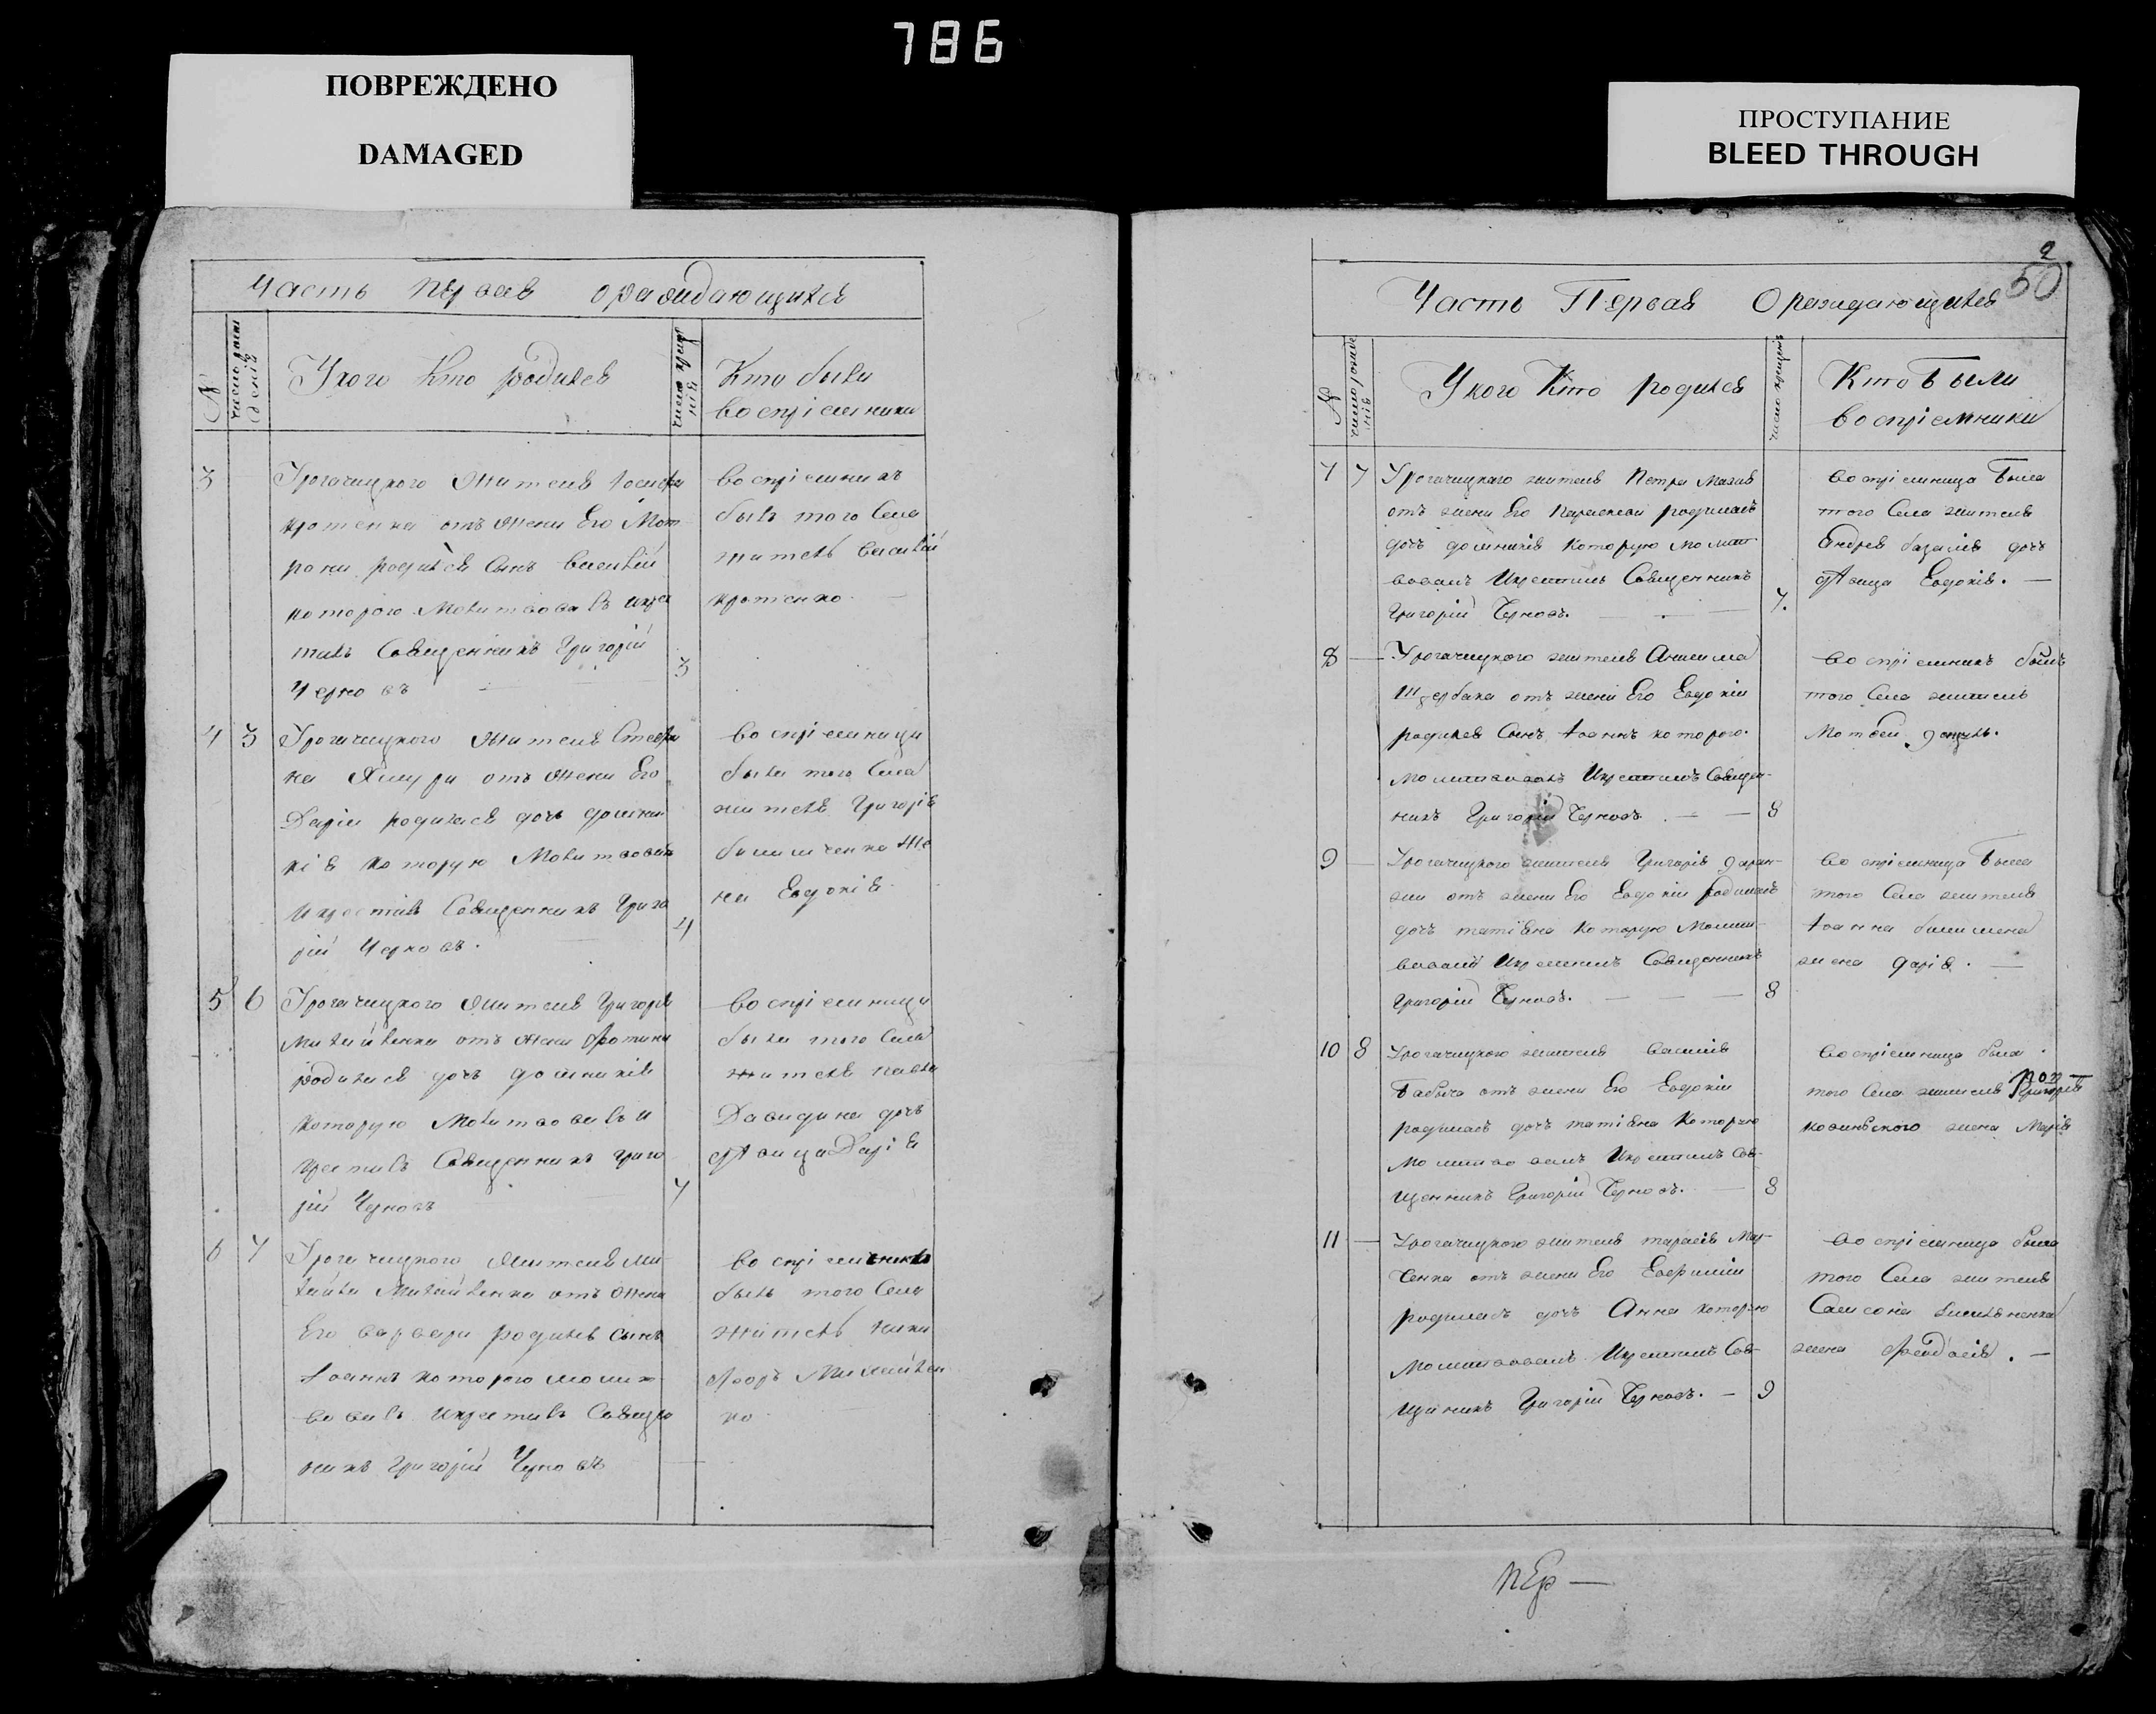 786
ПОВРЕЖДЕНО
DAMAGED
ПРОСТУПАНИЕ
BLEED THROUGH
Часть первая о раждающихся
№
число рож
деній
Укого Кто родился
число крещ
нія
Кто были
воспріемники
3
Урогачицкого Жителя Іосифа
кротенка отъ жени Его Мот
рони родился Сынъ Василій
которого Молитвовалъ икре
тилъ Священникъ Григорій
Черновъ
3
воспріемникъ
былъ того Села
житель Василій
кротенко
4 3
Урогачицкого Жителя Стефа
на отъ жени Его
Даріи родилася дочь домни
кія которую Молитвовалъ
икрестилъ Священникъ Григо
рій Черновъ.
4
воспріемница
была того Села
жителя Григорія
же
на Евдокія
5 6
Урогачицкого Жителя Григорія
отъ жени Фотини
родилася дочь домникія
которую Молитвовалъ и
крестилъ Священникъ Григо
рій Черновъ
7
воспріемница
была того Села
жителя павла
Давидина дочъ
дѣвица Дарія
6 7
Урогачицкого Жителя Ми
хаила отъ жени
Его варвари родился сынъ
Іоаннъ которого молит
вовалъ икрестилъ Священ
никъ Григорій Черновъ
воспріемникъ
былъ того Села
житель ники
форъ Михайлен
ко
2
50
Часть Первая О раждающихся
№
число рожде
нія
Укого Кто родился
число крещенія
Кто Были
воспріемники
7 7
Урогачицкаго жителя Петра
отъ жени Его Параскеви родилась
дочъ домникія Которую Молит
вовалъ Икрестилъ Священникъ
Григорій Черновъ.
7.
воспріемница Была
того Села жителя
Андрея дочъ
дѣвица Евдокія.
8
Урогачицкого жителя Анисима
Щербака отъ жени Его Евдокіи
родился Сынъ Іоаннъ которого
Молитвовалъ Икрестилъ Священ-
никъ Григорій Черновъ.
8
воспріемникъ былъ
того Села житель
Матвей
9
Урогачицкого жителя Григорія
отъ жени Его Евдокіи родилась
дочъ татіяна Которую Молит-
вовалъ Икрестилъ Священникъ
Григорій Черновъ.
8
воспріемница Была
того Села жителя
Іоанна
жена дарія.
10 8
Урогачицкого жителя василія
Бабыча отъ жени Его Евдокіи
родилась дочъ татіяна Которую
Молитвовалъ Икрестилъ Свя-
щенникъ Григорій Черновъ.
8
воспріемница была
того Села жителя Григорія
жена Марія
11
Урогачицкого жителя тарасія
отъ жени Его Евфиміи
родилась дочъ Анна Которую
Молитвовалъ Икрестилъ Свя-
щеникъ Григорій Черновъ.
9
воспріемница была
того Села жителя
Самсона
жена Феодосія.
пЕр